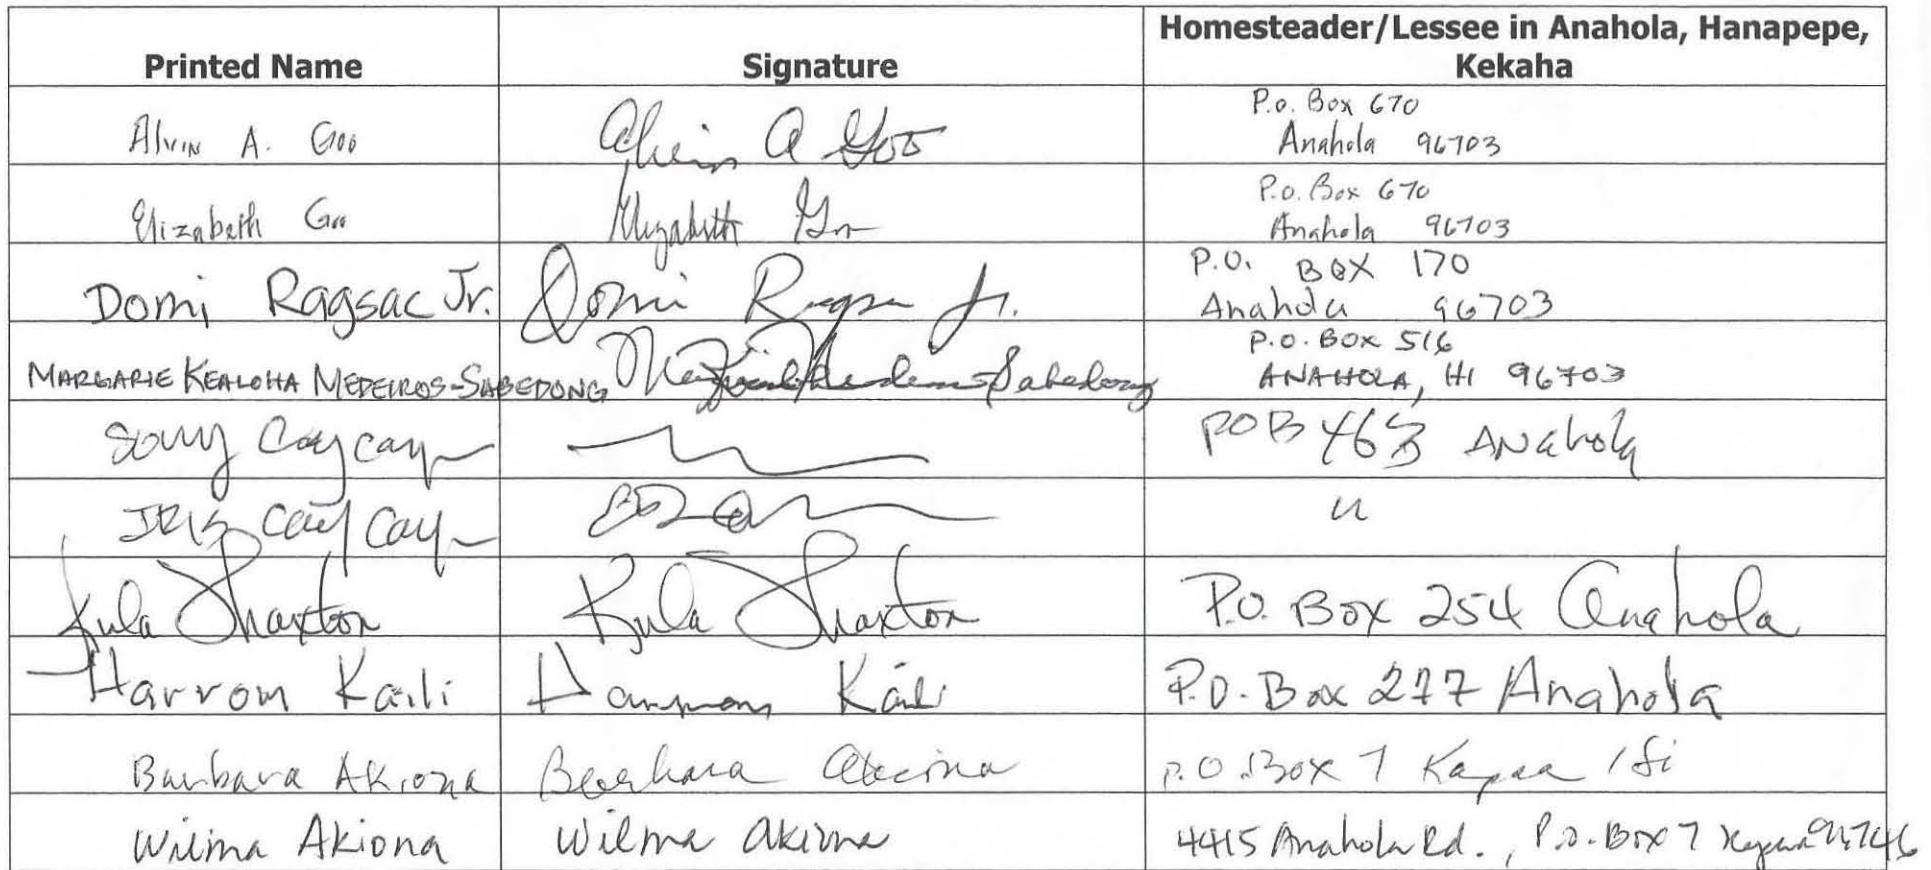 Printed Name Signature Homesteader/Lessee in Anahola, Hanapepe,
Kekaha
Alvin A. Goo Alvin A Goo P.O. Box 670
Anahola 96703
Elizabeth Goo Elizabeth Goo P.O. Box 670
Anahola 96703
Domi Ragsac Jr. Domi Jr. P.O. BOX 170
Anahola 96703
MARGARIE KEALOHA MEDEIROS-SABEDONG Sabedong P.O. BOX 516
ANAHOLA, HI 96703
Caycay POB 463 ANahola
IRIS Caycay "
Kula Thaxton Kula Thaxton P.O. Box 254 Anahola
Harrom Kaili Kaili P.O. Box 277 Anahola
Barbara Akiona Barbara Akiona P.O. Box 7 Kapaa
Wilma Akiona Wilma Akiona 4415 Anahola Rd., P.O. Box 7 Kapaa 96746